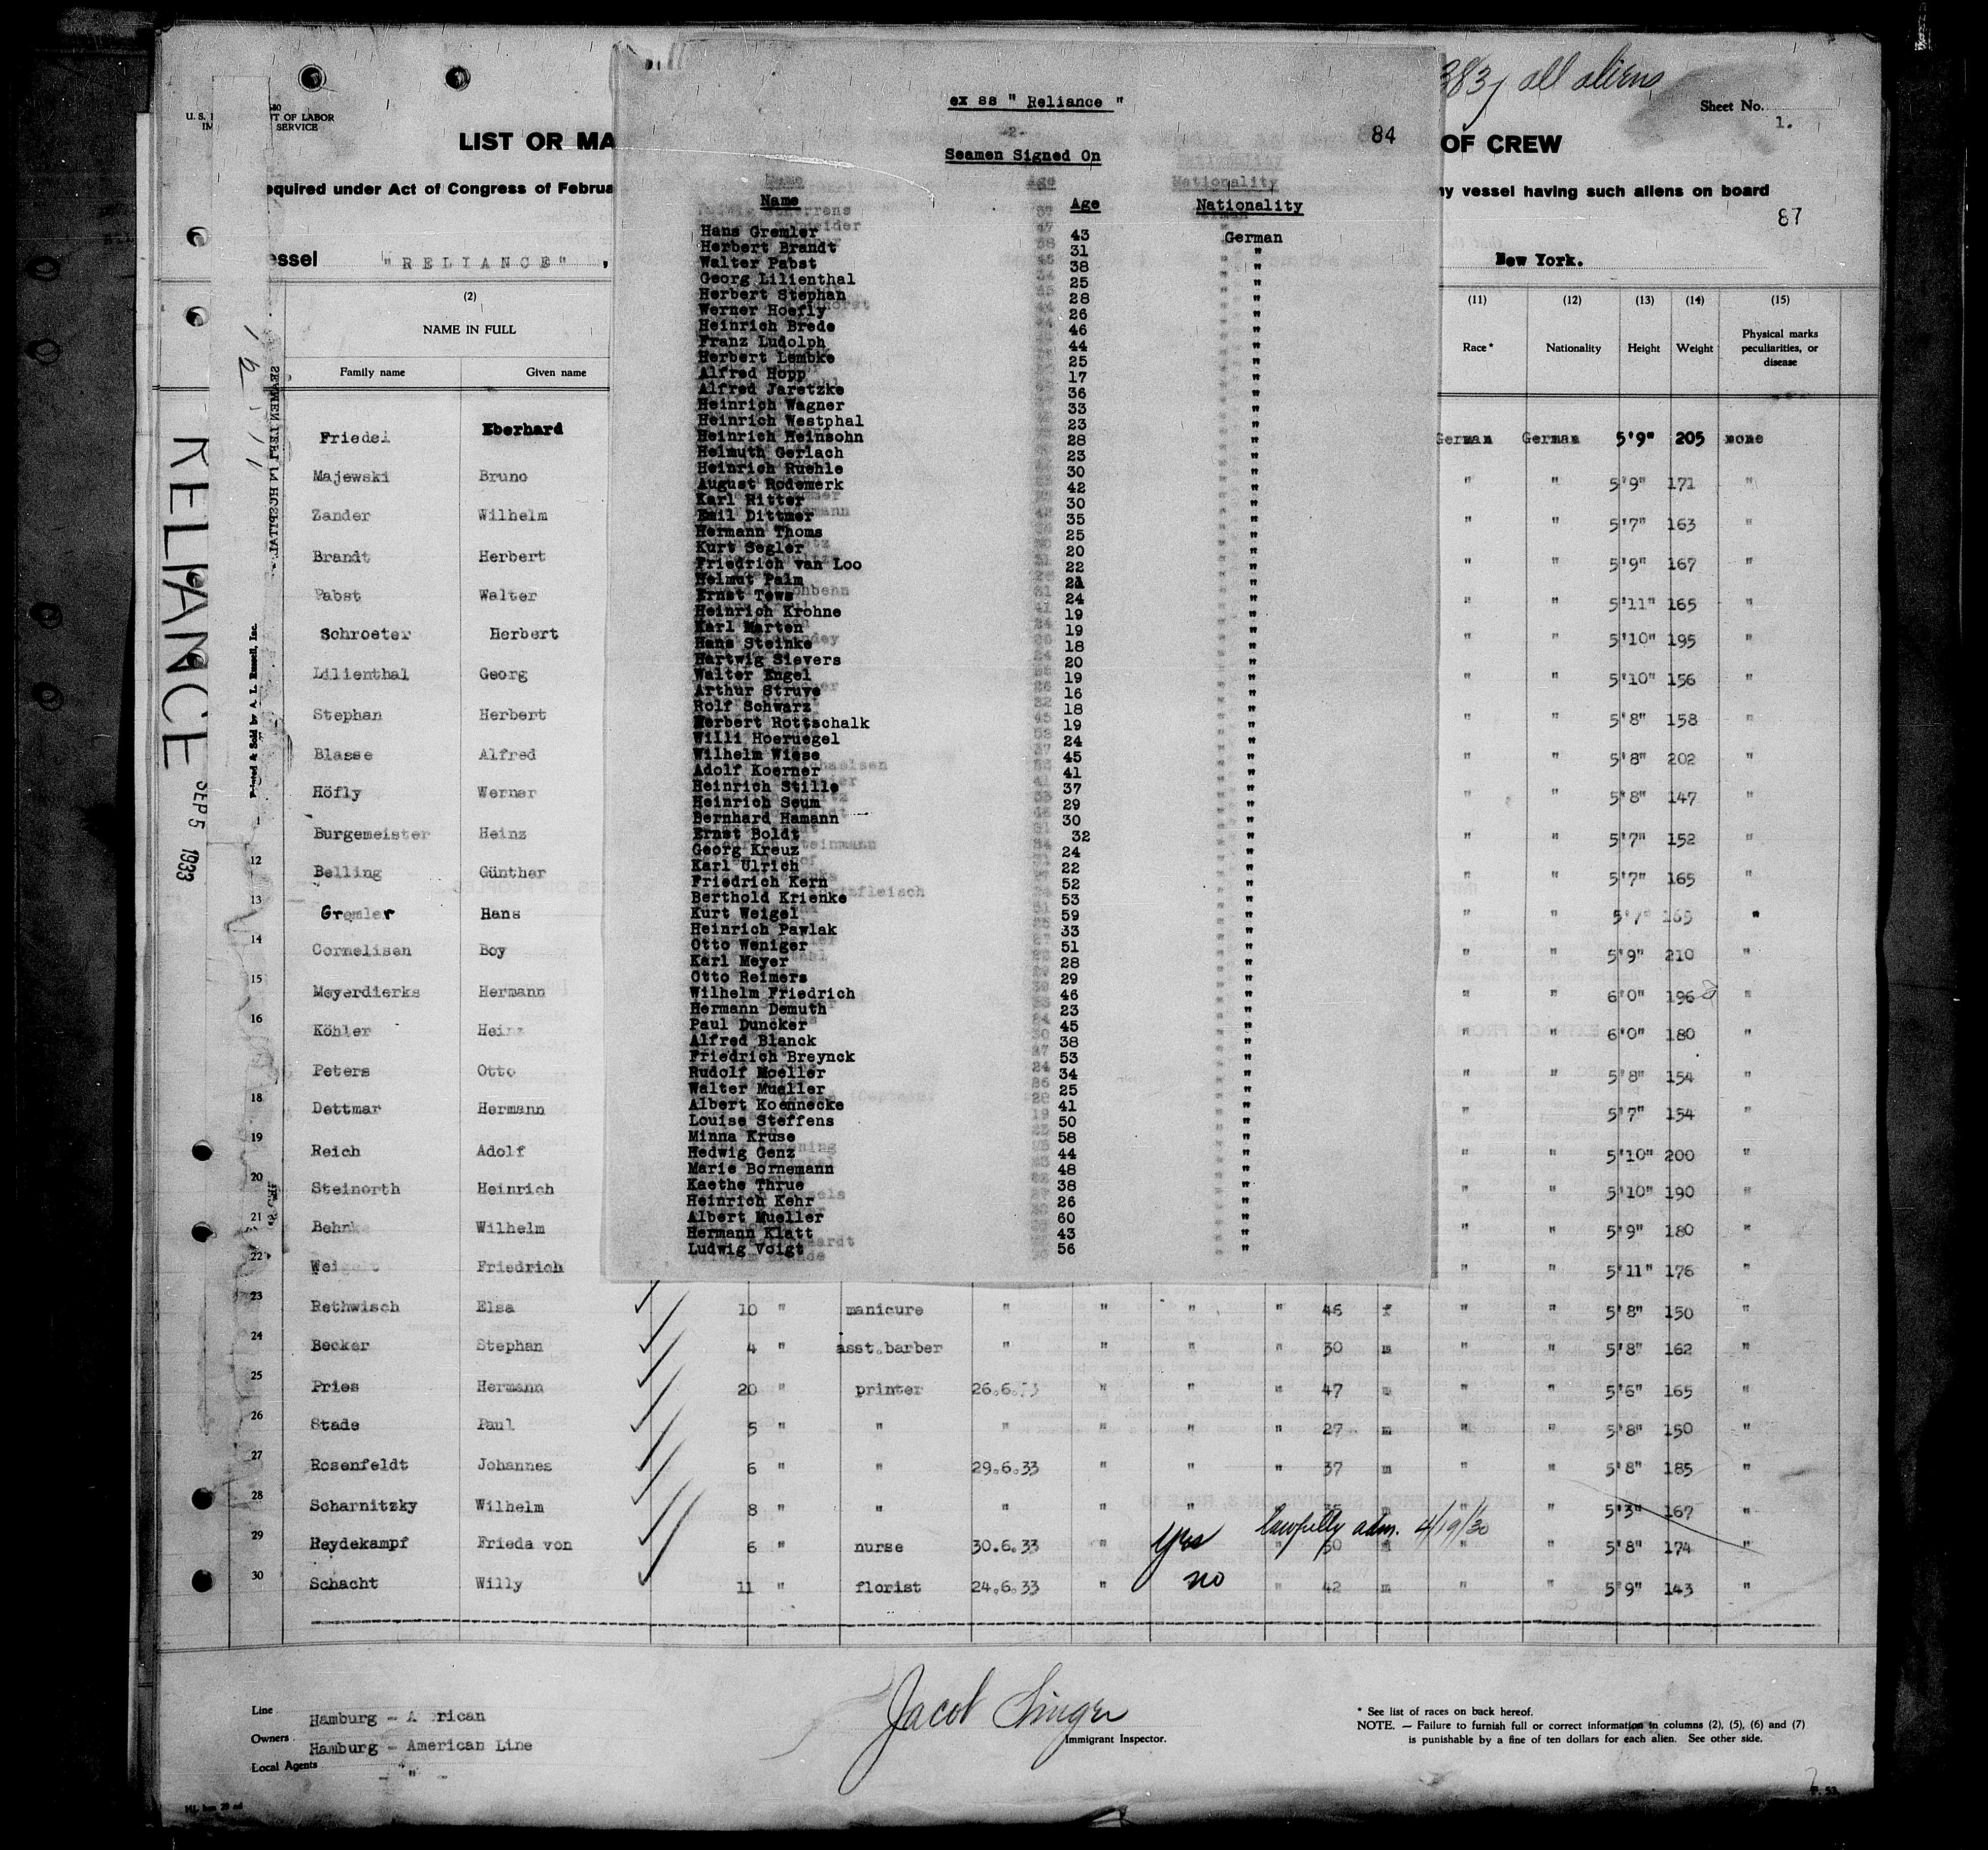 383 / all aliens
Sheet No. 1.
OF LABOR
SERVICE
LIST OR MA
OF CREW
equired under Act of Congress of Februa
ny vessel having such aliens on board
87
essel "RELIANCE" ,
New York.
(2) (11) (12) (13) (14) (15)
NAME IN FULL
Family name Given name Race* Nationality Height Weight Physical marks peculiarities, or disease
ex ss " Reliance "
-2-
84
Seamen Signed On
Name Age Nationality
Hans Gremler 43 German
Herbert Brandt 31 "
Walter Pabst 38 "
Georg Lilienthal 25 "
Herbert Stephan 28 "
Werner Hoefly 26 "
Heinrich Brede 46 "
Franz Ludolph 44 "
Herbert Lembke 25 "
Alfred Hopp 17 "
Alfred Jaretzke 36 "
Heinrich Wagner 33 "
Heinrich Westphal 23 "
Heinrich Heinsohn 28 "
Helmuth Gerlach 23 "
Heinrich Ruehle 30 "
August Rodemerk 42 "
Karl Ritter 30 "
Emil Dittmer 35 "
Hermann Thoms 25 "
Kurt Segler 20 "
Friedrich van Loo 22 "
Helmut Palm 21 "
Ernst Tews 24 "
Heinrich Krohne 19 "
Karl Marten 19 "
Hans Steinke 18 "
Hartwig Sievers 20 "
Walter Engel 19 "
Arthur Struve 16 "
Rolf Schwarz 18 "
Herbert Rottschalk 19 "
Willi Hoeruegel 24 "
Wilhelm Wiese 45 "
Adolf Koerner 41 "
Heinrich Stille 37 "
Heinrich Seum 29 "
Bernhard Hamann 30 "
Ernst Boldt 32 "
Georg Kreuz 24 "
Karl Ulrich 22 "
Friedrich Kern 52 "
Berthold Krienke 53 "
Kurt Weigel 59 "
Heinrich Pawlak 33 "
Otto Weniger 51 "
Karl Meyer 28 "
Otto Reimers 29 "
Wilhelm Friedrich 46 "
Hermann Demuth 23 "
Paul Duncker 45 "
Alfred Blanck 38 "
Friedrich Breynck 53 "
Rudolf Moeller 34 "
Walter Mueller 25 "
Albert Koennecke 41 "
Louise Steffens 50 "
Minna Kruse 58 "
Hedwig Genz 44 "
Marie Bornemann 48 "
Kaethe Thrue 38 "
Heinrich Kehr 26 "
Albert Mueller 60 "
Hermann Klatt 43 "
Ludwig Voigt 56 "
RELIANCE SEP 5 1933
SEAMEN LEFT IN HOSPITAL
Printed & Sold by A. L. Russell, Inc.
Friedel Eberhard German German 5'9" 205 none
Majewski Bruno " " 5'9" 171 "
Zander Wilhelm " " 5'7" 163 "
Brandt Herbert " " 5'9" 167 "
Pabst Walter " " 5'11" 165 "
Schroeter Herbert " " 5'10" 195 "
Lilienthal Georg " " 5'10" 156 "
Stephan Herbert " " 5'8" 158 "
Blasse Alfred " " 5'8" 202 "
Höfly Werner " " 5'8" 147 "
Burgemeister Heinz " " 5'7" 152 "
12 Belling Günther " " 5'7" 165 "
13 Gremler Hans " " 5'7" 165 "
14 Cornelisen Boy " " 5'9" 210 "
15 Meyerdierks Hermann " " 6'0" 196 "
16 Köhler Heinz " " 6'0" 180 "
Peters Otto " " 5'8" 154 "
18 Dettmar Hermann " " 5'7" 154 "
19 Reich Adolf " " 5'10" 200 "
20 Steinorth Heinrich " " 5'10" 190 "
21 Behnke Wilhelm " " 5'9" 180 "
22 Weigelt Friedrich " " 5'11" 176 "
23 Rethwisch Elsa 10 " manicure " " " " 46 f " " 5'8" 150 "
24 Becker Stephan 4 " asst.barber " " " " 30 m " " 5'8" 162 "
25 Pries Hermann 20 " printer 26.6.33 " " " 47 m " " 5'6" 165 "
26 Stade Paul 5 " " " " " " 27 m " " 5'8" 150 "
27 Rosenfeldt Johannes 6 " " 29.6.33 " " " 37 m " " 5'8" 185 "
28 Scharnitzky Wilhelm 8 " " " " " " 35 m " " 5'3" 167 "
lawfully adm. 4/19/30
29 Heydekampf Frieda von 6 " nurse 30.6.33 " yes " 50 f " " 5'8" 174 "
30 Schacht Willy 11 " florist 24.6.33 " no " 42 m " " 5'9" 143 "
Line Hamburg - A rican
Owners Hamburg - American Line
Local Agents - " -
Jacob Singer
Immigrant Inspector.
* See list of races on back hereof.
NOTE. — Failure to furnish full or correct information in columns (2), (5), (6) and (7)
is punishable by a fine of ten dollars for each alien. See other side.